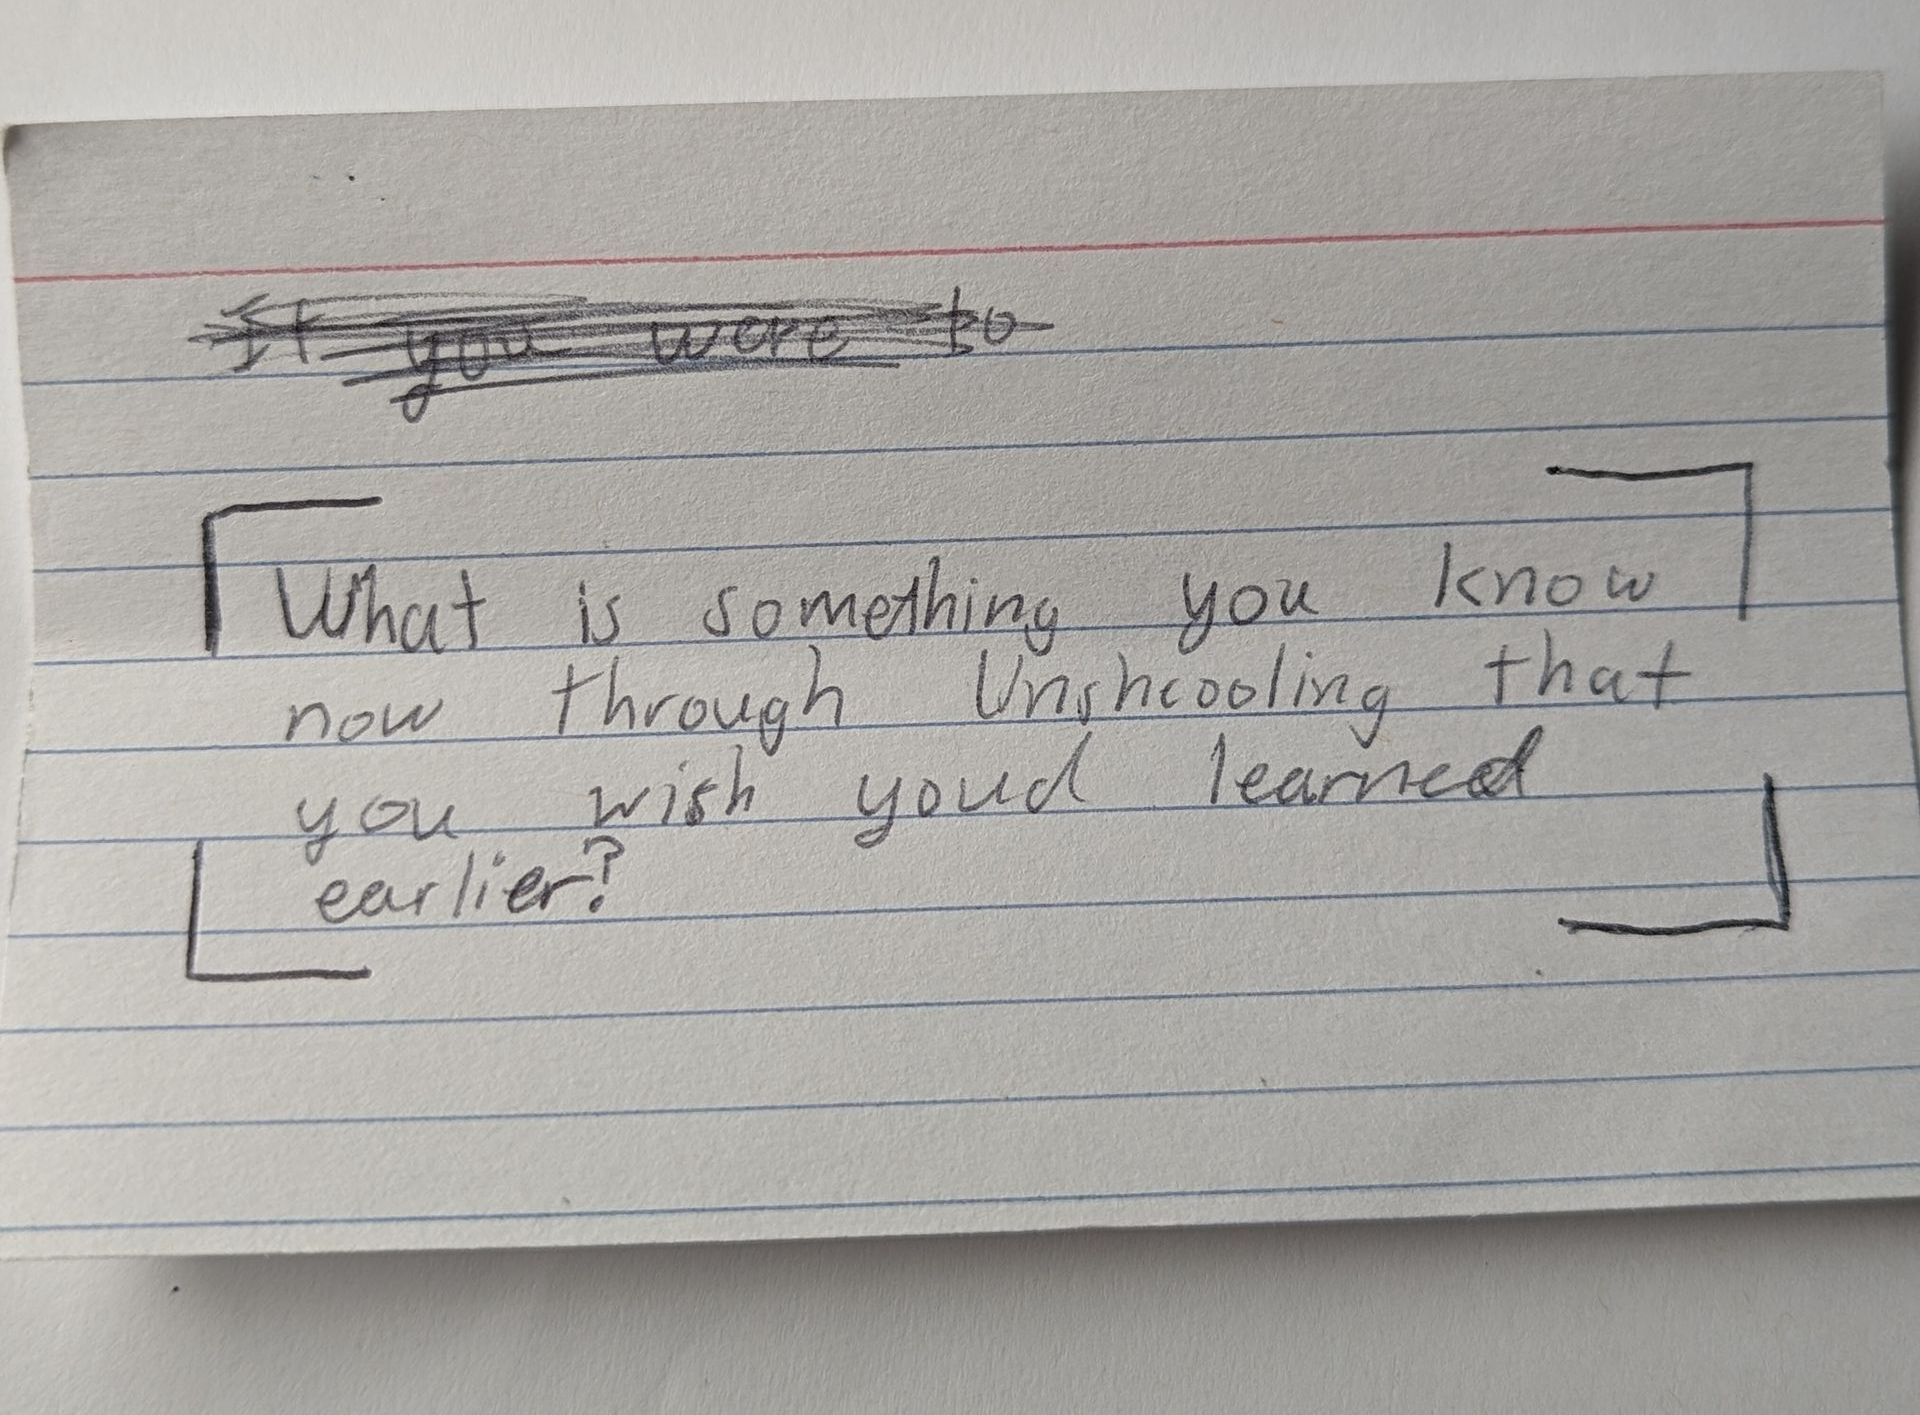 If you were to
What is something you know
now through Unshcooling that
you wish youd learned
earlier?